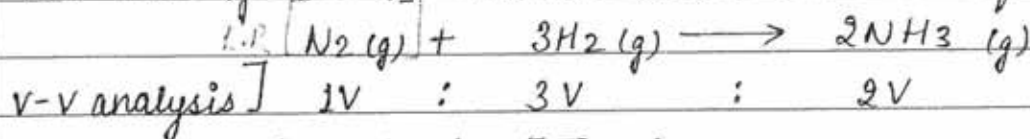 L.R. N2 (g) + 3H2 (g) ⟶ 2NH3 (g)
V-V analysis] 1V : 3V : 2V